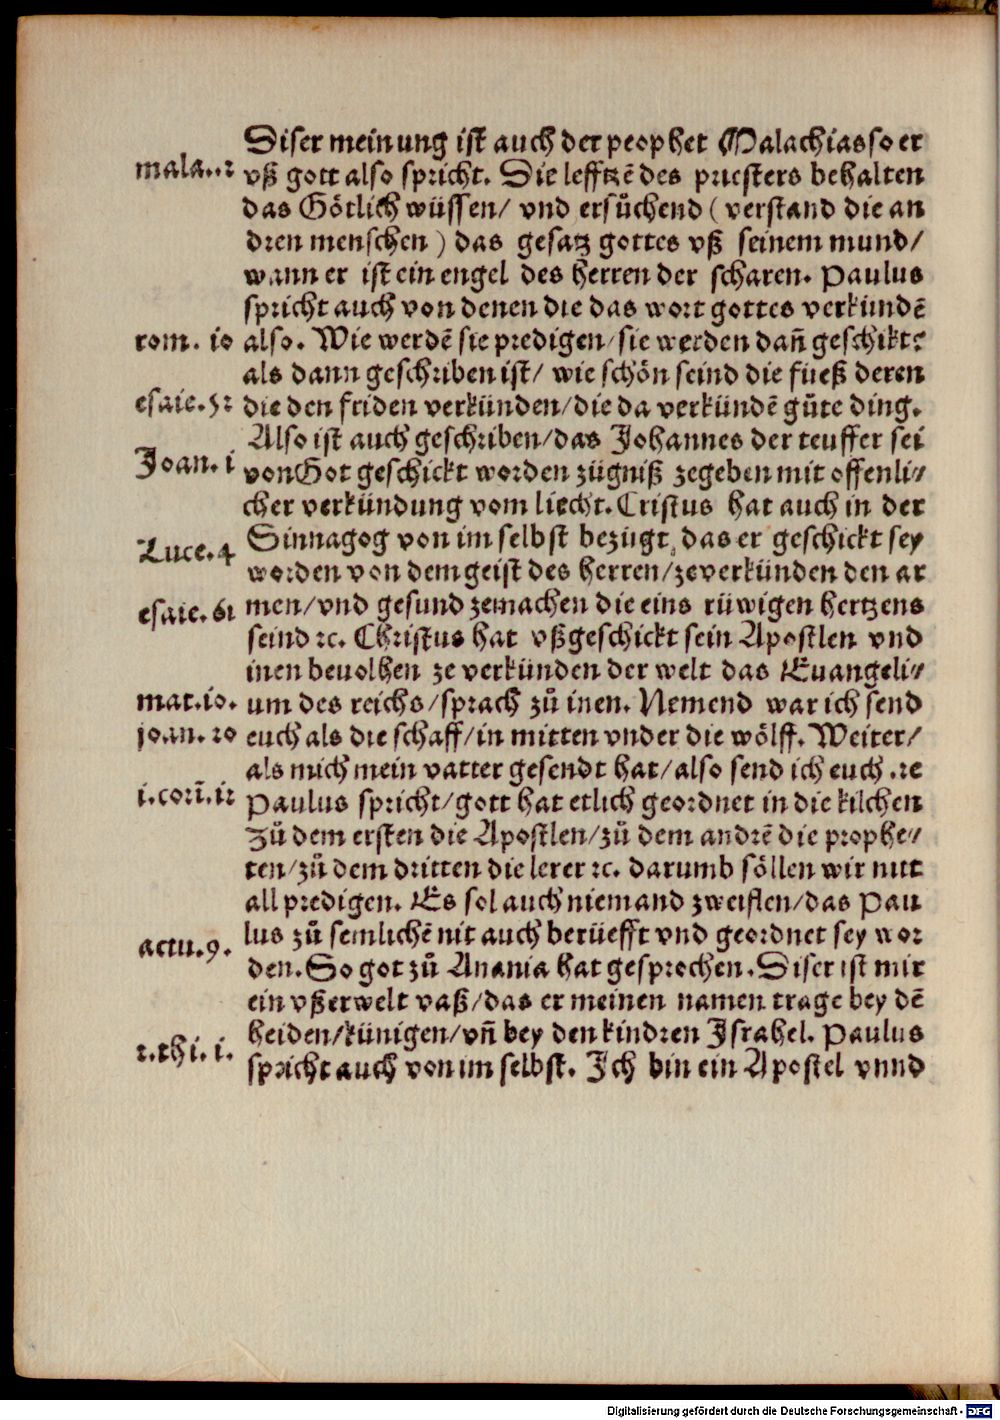 Diser meinung ist auch der peophet Malachias so er
mala. .2
vß gott also spricht. Die lefftzẽ des priesters behalten
das Götlich wüssen/ vnd ersůchend ( verstand die an
dren menschen ) das gesatz gottes vß seinem mund/
wann er ist ein engel des herren der scharen. Paulus
spricht auch von denen die das wort gottes verkündẽ
rom. 10
also. Wie werdẽ sie predigen/sie werden dañ geschikt:
als dann geschriben ist/ wie schön seind die füeß deren
esaie. 52
die den friden verkünden/die da verkündẽ gůte ding.
Also ist auch geschriben/das Johannes der teuffer sei
Joan. i
von Got geschickt worden zügniß zegeben mit offenli⸗
cher verkündung vom liecht. Cristus hat auch in der
Luce. 4
Sinnagog von im selbst bezügt, das er geschickt sey
worden von dem geist des herren/zeverkünden den ar
esaie. 61
men/vnd gesund zemachen die eins rüwigen hertzens
seind ꝛc. Christus hat vßgeschickt sein Apostlen vnd
inen beuolhen ze verkünden der welt das Euangeli⸗
mat.10.
um des reichs/sprach zů inen. Nemend war ich send
joan. 20
euch als die schaff/in mitten vnder die wölff. Weiter/
als mich mein vatter gesendt hat/also send ich euch .ꝛc
i.corī.12
Paulus spricht/gott hat etlich geordnet in die kilchen
Zů dem ersten die Apostlen/zů dem andrẽ die prophe⸗
ten/zů dem dritten die lerer ꝛc. darumb söllen wir nitt
all predigen. Es sol auch niemand zweiflen/das Pau
actu. 9.
lus zů semlichẽ nit auch berüefft vnd geordnet sey wor
den. So got zů Anania hat gesprochen. Diser ist mir
ein vßerwelt vaß/das er meinen namen trage bey dẽ
heiden/künigen/vñ bey den kindren Israhel. Paulus
2.thi. i.
spricht auch von im selbst. Ich bin ein Apostel vnnd
Digitalisierung gefördert durch die Deutsche Forschungsgemeinschaft - DFG